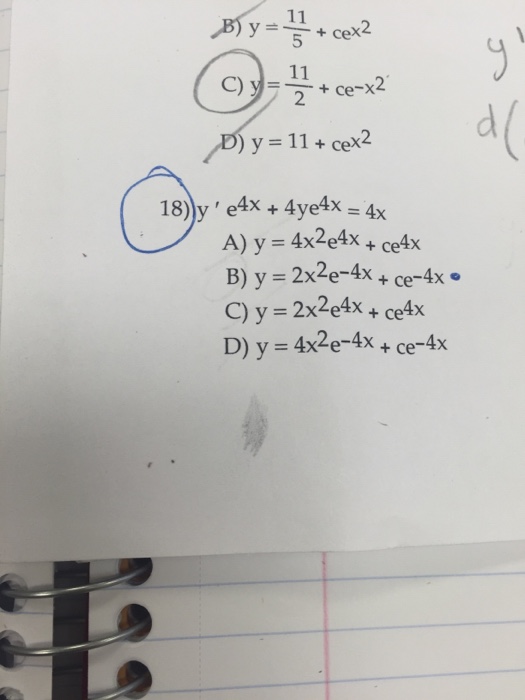 B) y = 11/5 + cex2
C) y = 11/2 + ce-x2
y'
d(
D) y = 11 + cex2
18) y ' e4x + 4ye4x = 4x
A) y = 4x2e4x + ce4x
B) y = 2x2e-4x + ce-4x
C) y = 2x2e4x + ce4x
D) y = 4x2e-4x + ce-4x